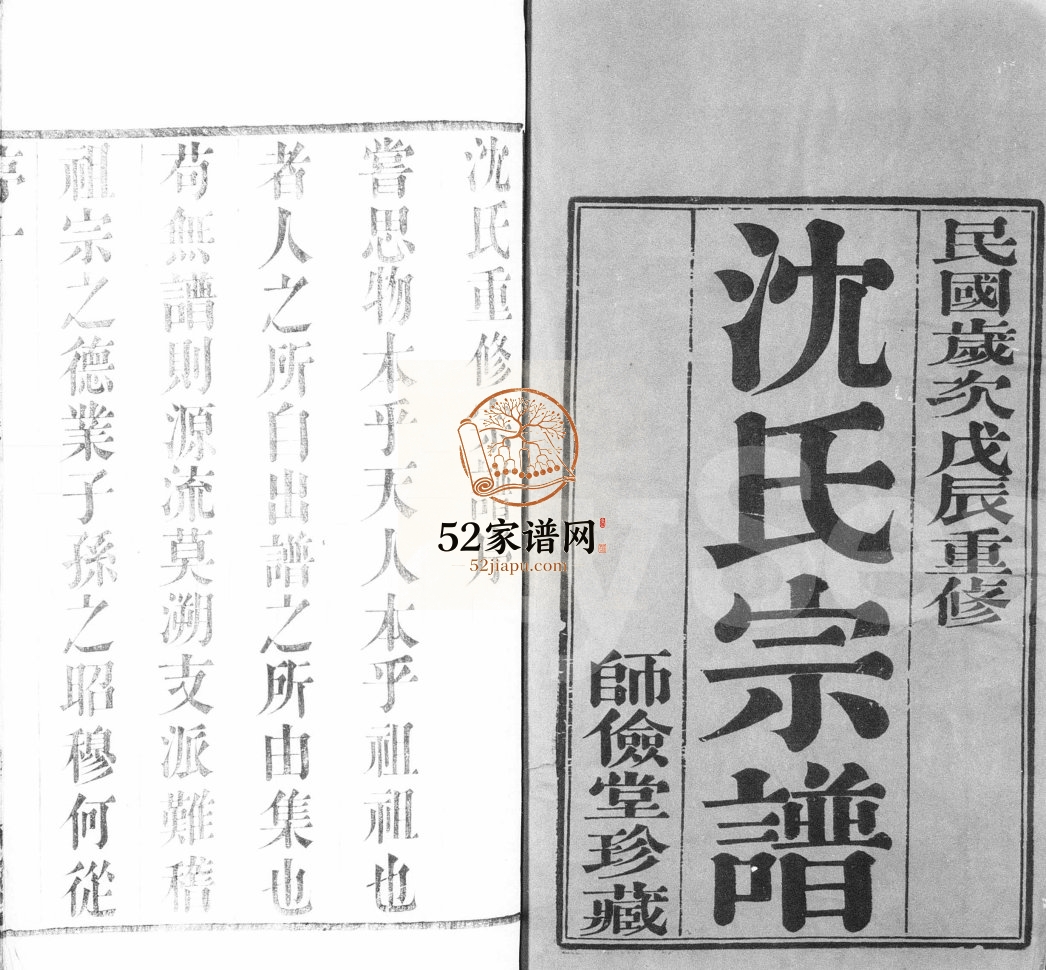 民國歲次戊辰重修
沈氏宗譜
師儉堂珍藏
沈氏重修
嘗思物本乎天人本乎祖祖也
者人之所自出譜之所由集也
苟無譜則源流莫溯支派難稽
祖宗之德業子孫之昭穆何從
52家谱网
52jiapu.com